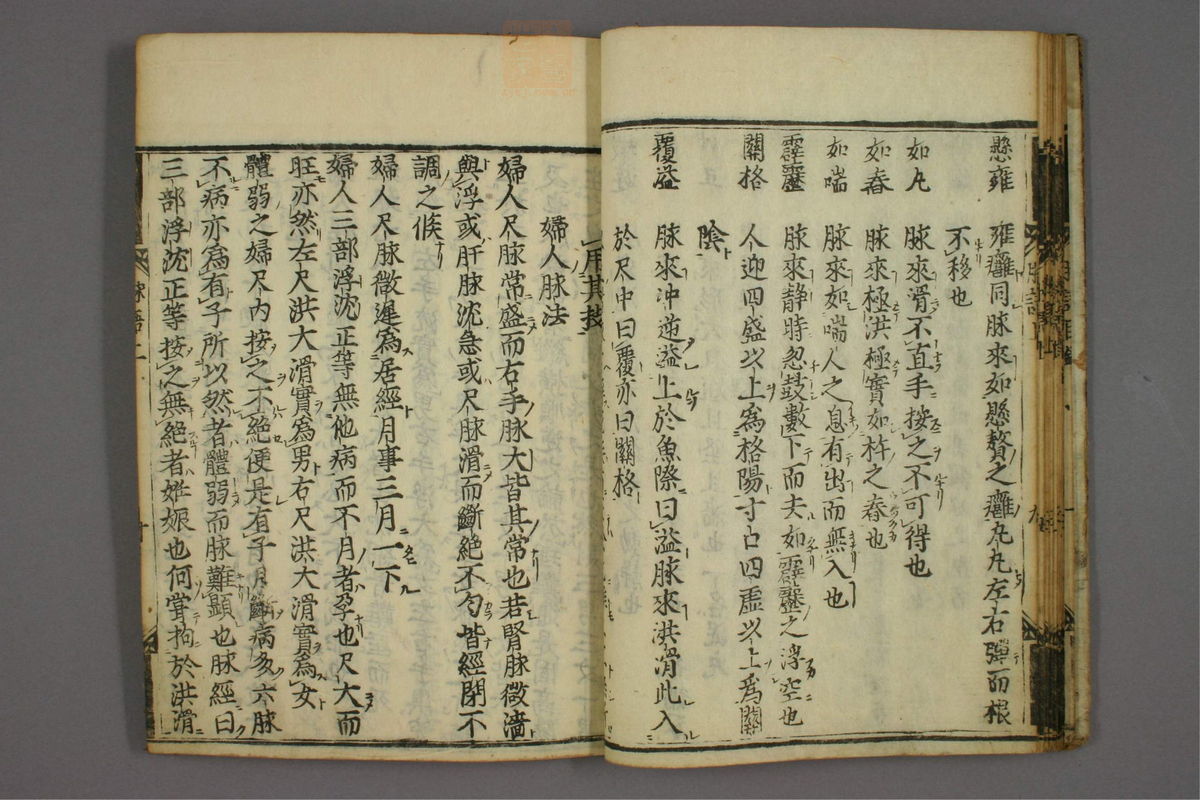 懸雍 雍癰同脉來如懸贅之癰丸丸左右彈而根
不移也
如丸 脉來滑不直手按之不可得也
如舂 脉來極洪極實如杵之舂也
如喘 脉來如喘人之息有出而無入也
霹靂 脉來静時忽鼓數下而去如霹靂之浮空也
關格 人迎四盛以上爲格陽寸口四虛以上爲關
陰
覆溢 脉來冲逆溢上於魚際曰溢脉來洪滑此入
於尺中曰覆亦曰關格
婦人脉法
婦人尺脉常盛而右手脉大皆其常也若腎脉微濇
與浮或肝脉沈急或尺脉滑而斷絕不勻皆經閉不
調之候
婦人尺脉微遲爲居經月事三月一下
婦人三部浮沈正等無他病而不月者孕也尺大而
旺亦然左尺洪大滑實爲男右尺洪大滑實爲女
體弱之婦尺内按之不絕便是有子月斷病多六脉
不病亦爲有子所以然者體弱而脉難顯也脉經曰
三部浮沈正等按之無絕者姙娠也何嘗拘於洪滑